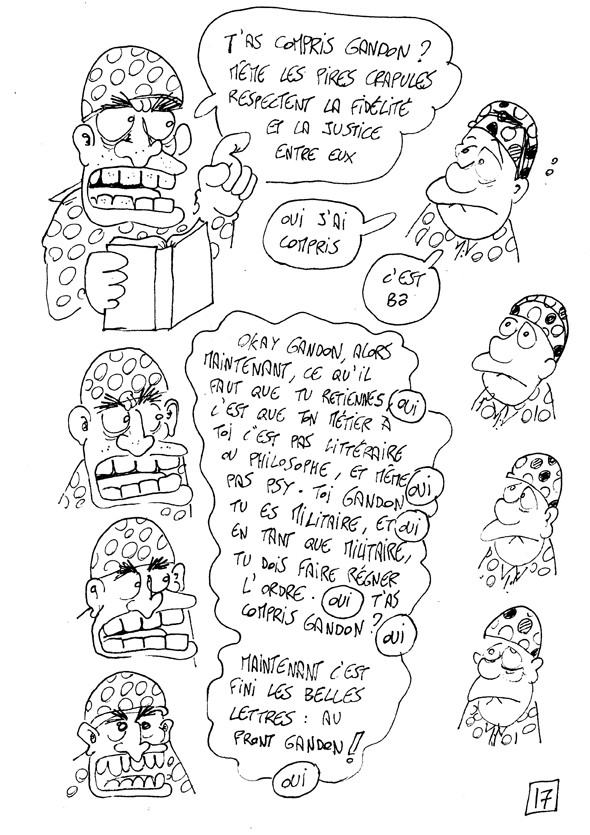 T'AS COMPRIS GANDON ?
MÊME LES PIRES CRAPULES
RESPECTENT LA FIDÉLITÉ
ET LA JUSTICE
ENTRE EUX
OUI J'AI
COMPRIS
C'EST
BƏ
OKAY GANDON, ALORS
MAINTENANT, CE QU'IL
FAUT QUE TU RETIENNES,
OUI
C'EST QUE TON MÉTIER À
TOI C'EST PAS LITTÉRAIRE
OU PHILOSOPHE, ET MÊME
PAS PSY. TOI GANDON
OUI
TU ES MILITAIRE, ET
OUI
EN TANT QUE MILITAIRE,
TU DOIS FAIRE RÉGNER
L'ORDRE.
OUI
T'AS
COMPRIS GANDON ?
OUI
MAINTENANT C'EST
FINI LES BELLES
LETTRES : AU
FRONT GANDON !
OUI
17